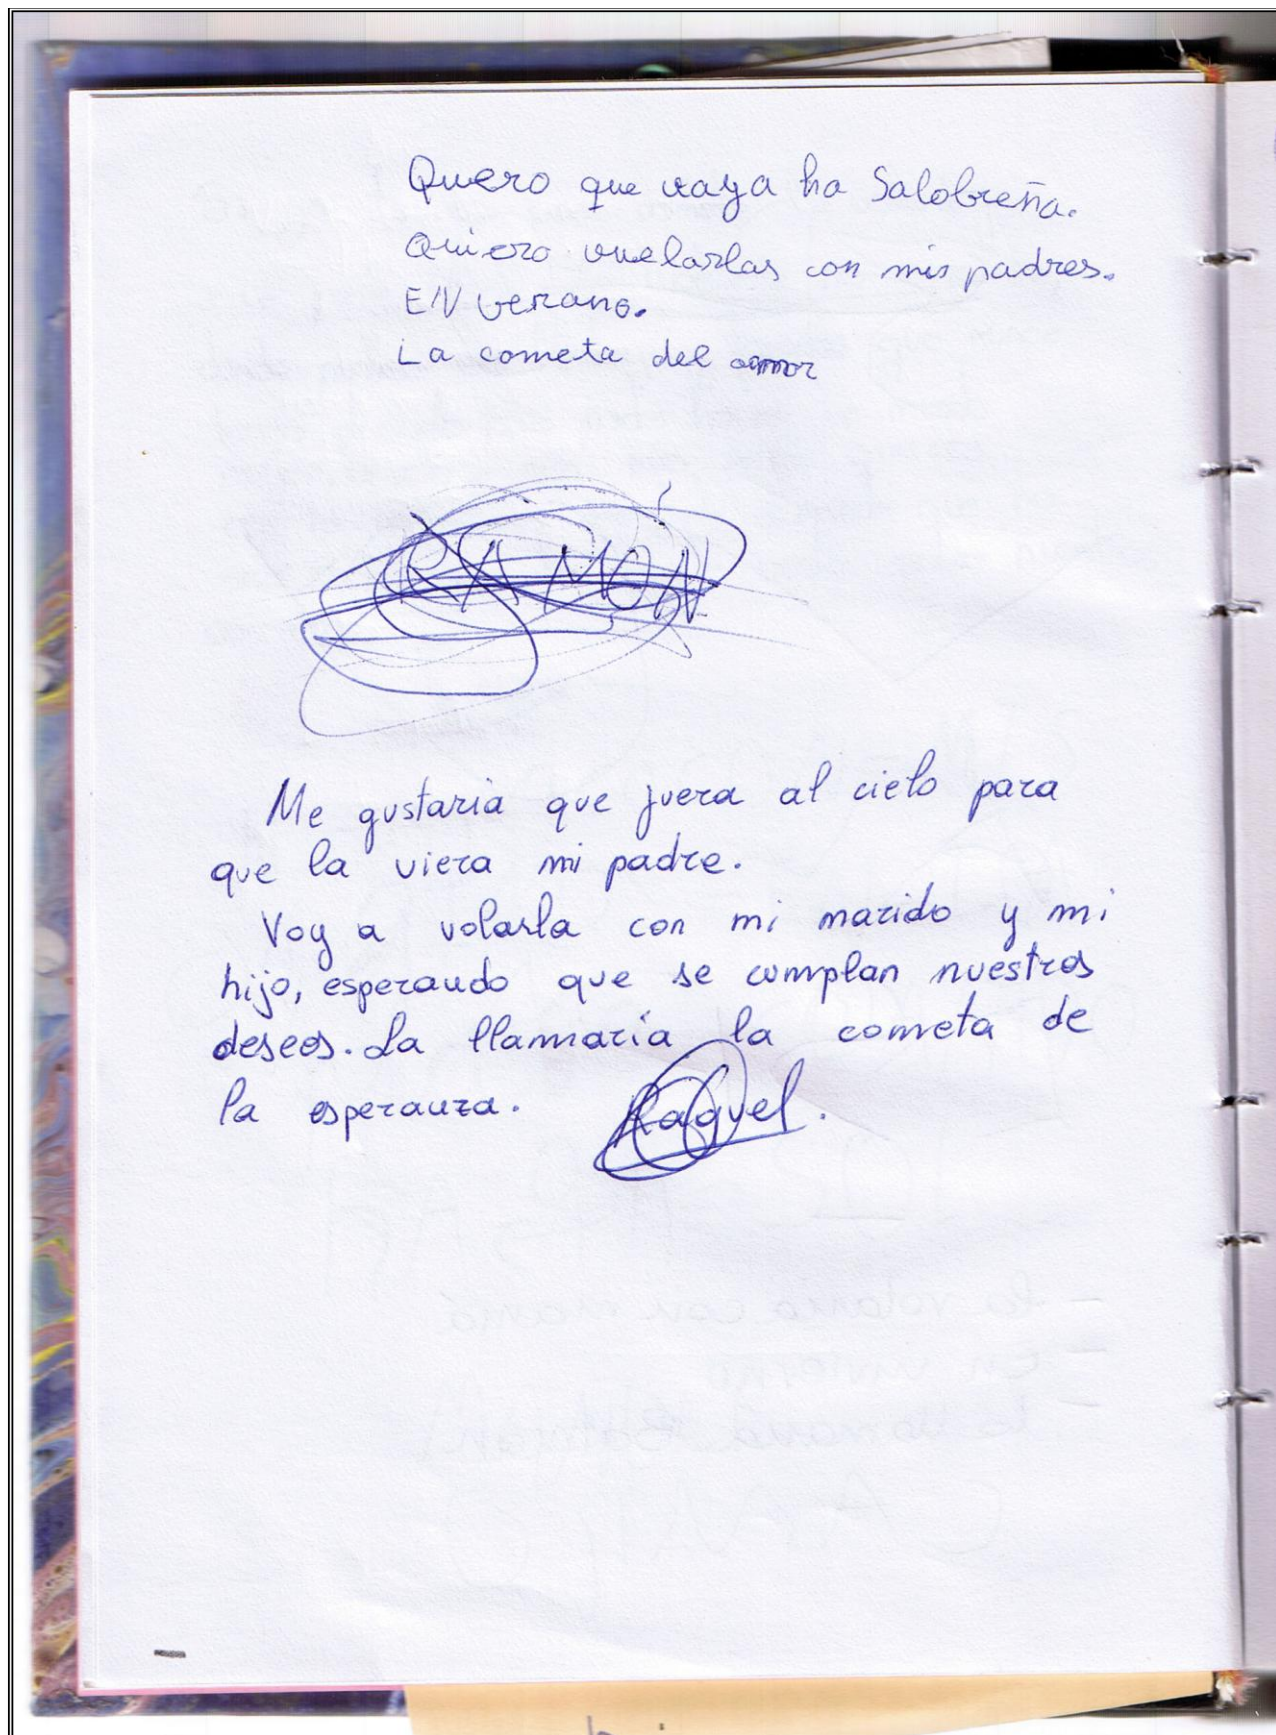 Quero que vaya ha Salobreña.
Quiero vuelarlas con mis padres.
EN verano.
La cometa del amor
RAMÓN
Me gustaría que fuera al cielo para
que la viera mi padre.
Voy a volarla con mi marido y mi
hijo, esperando que se cumplan nuestros
deseos. La llamaría la cometa de
la esperanza. Raquel.